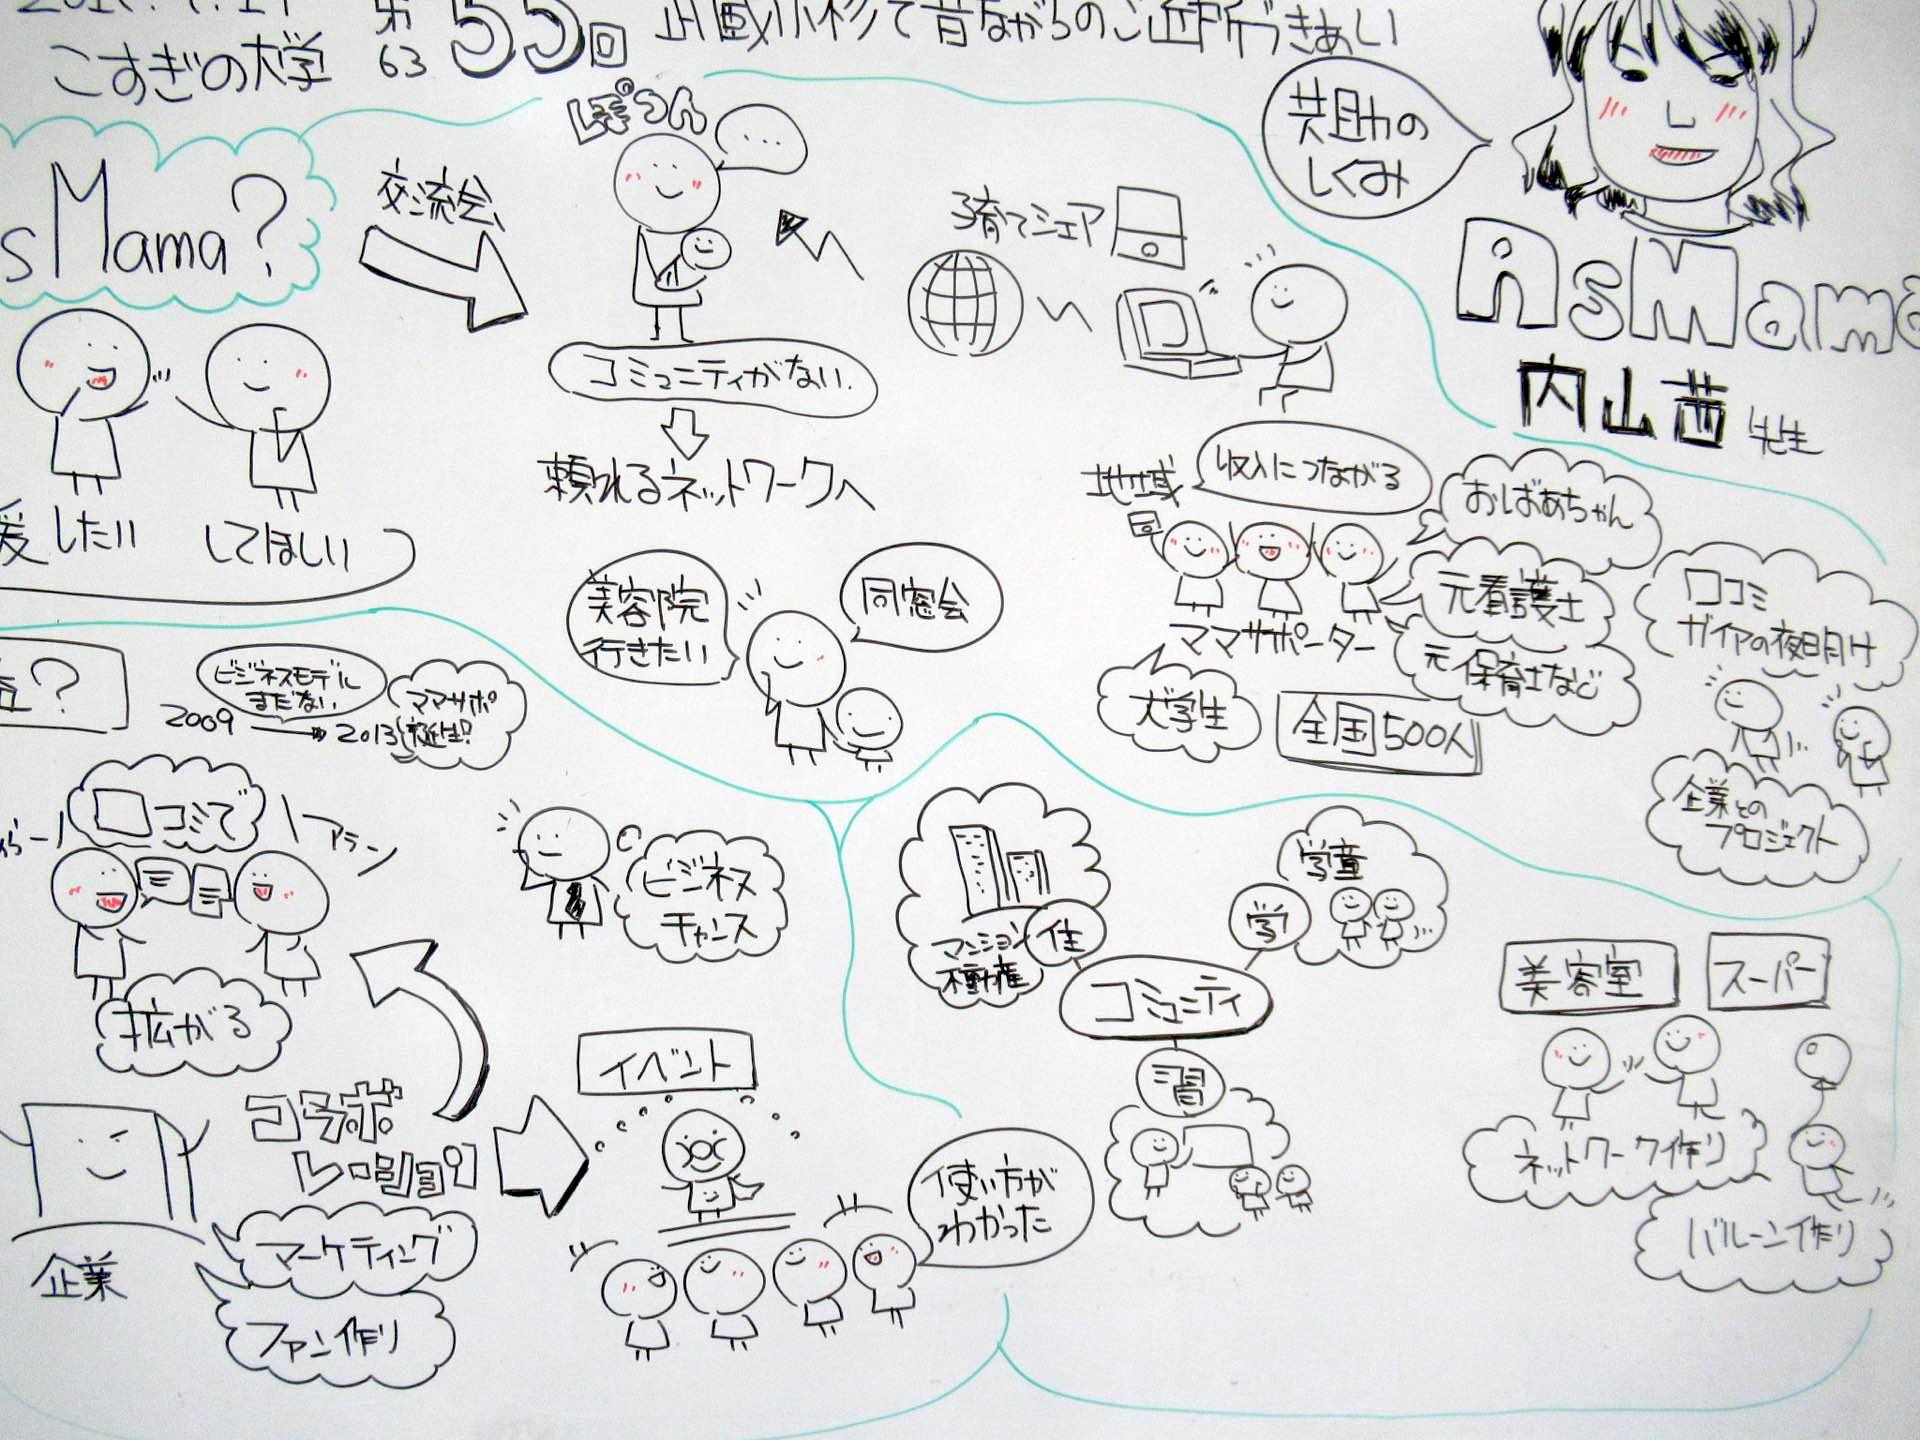 こすぎの大学
第
63
55回
武蔵小杉で昔ながらのご近所づきあい
共助の
しくみ
AsMama
内山茜先生
sMama?
交流会、
ぽつん
...
コミュニティがない
頼れるネットワークへ
子育てシェア
援したい
してほしい
美容院
行きたい
同窓会
地域
収入につながる
ママサポーター
おばあちゃん
元看護士
元保育士など
大学生
全国500人
口コミ
ガイアの夜明け
企業との
プロジェクト
?
2009
ビジネスモデル
まだない
2013
ママサポ
誕生!
口コミで
拡がる
ビジネス
チャンス
企業
コラボ
レーション
マーケティング
ファン作り
イベント
使い方が
わかった
コミュニティ
住
マンション
学
学童
習
美容室
スーパー
ネットワーク作り
バルーン作り